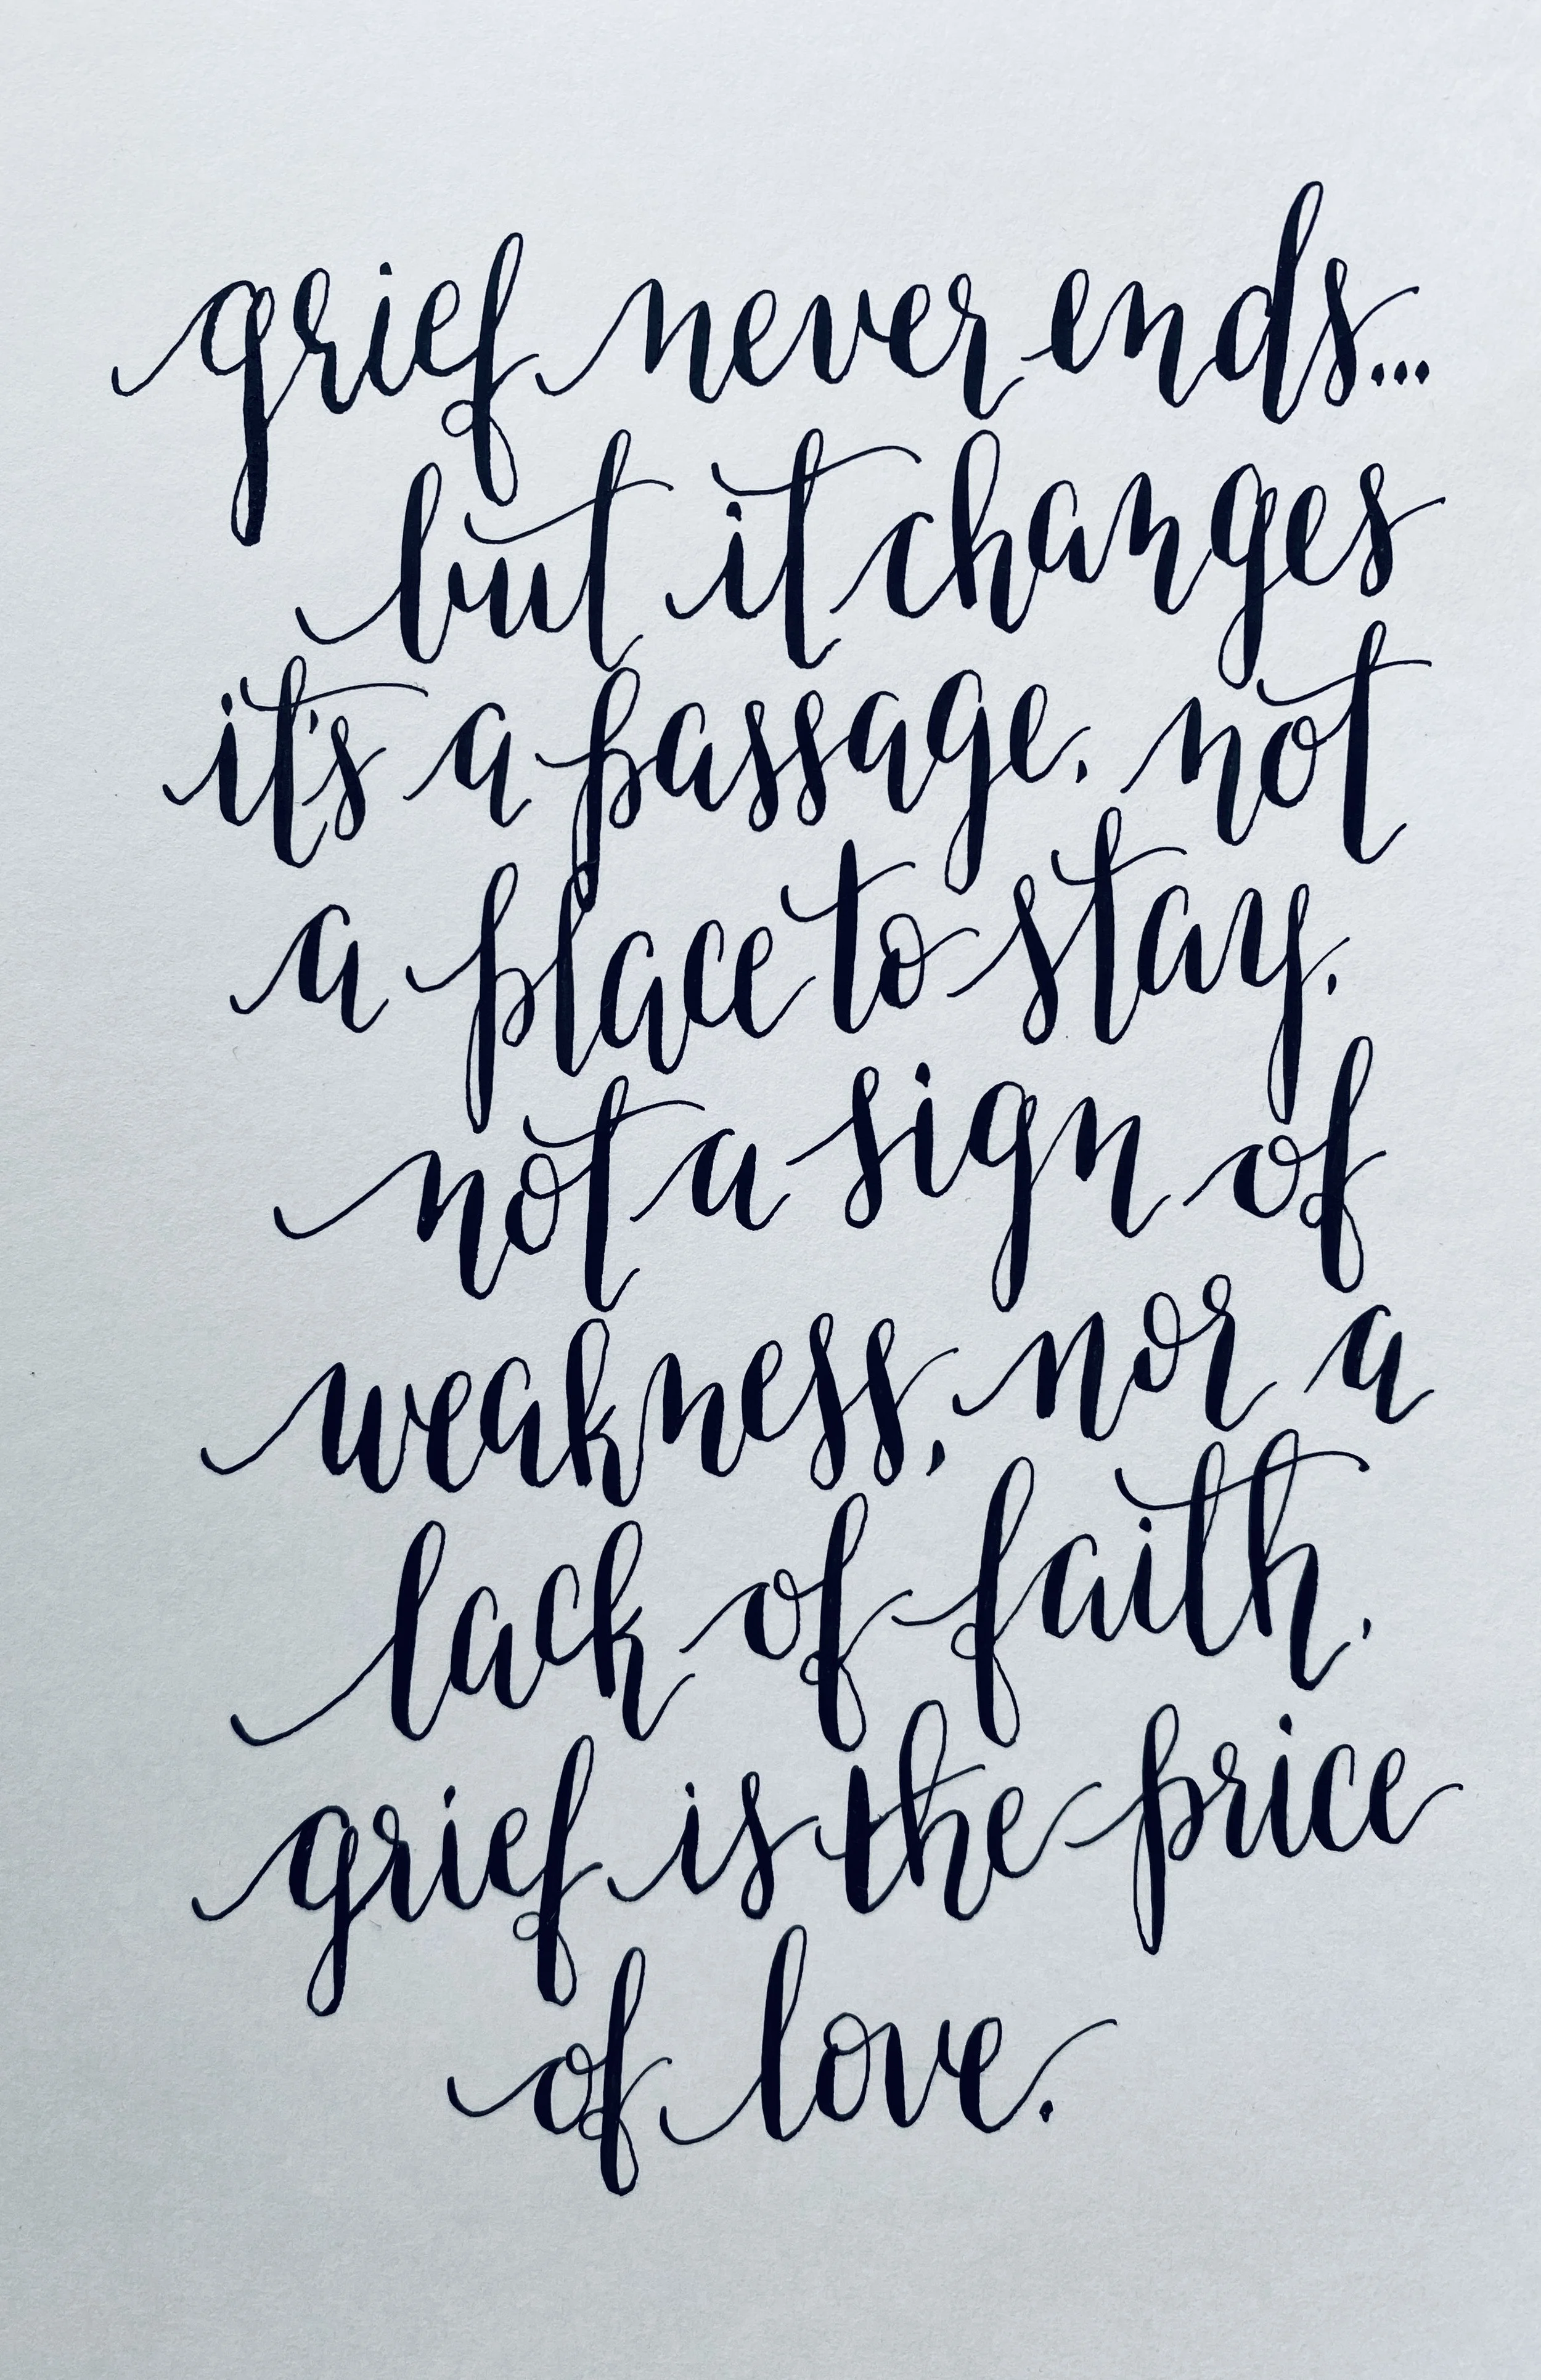 grief never ends...
but it changes
it's a passage, not
a place to stay.
not a sign of
weakness, nor a
lack of faith.
grief is the price
of love.